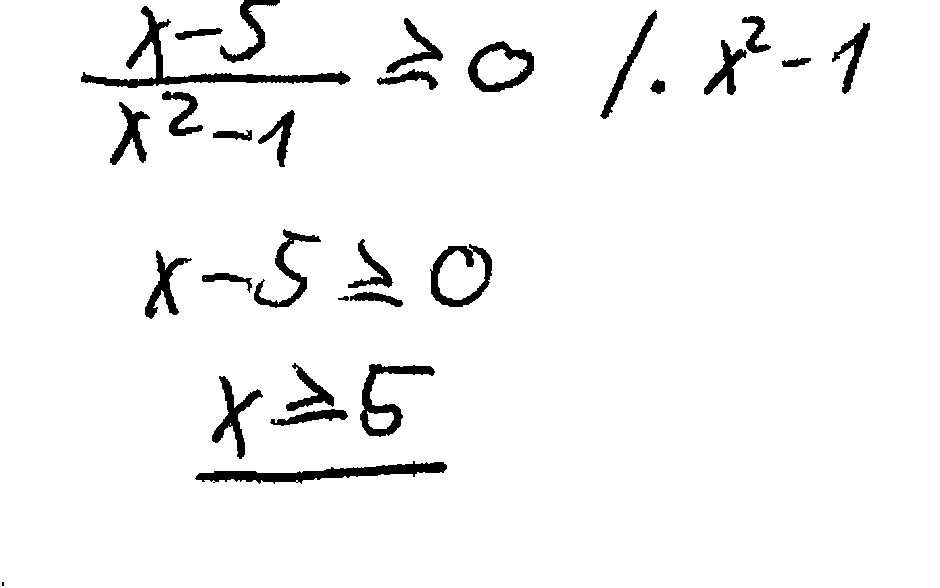 x-5/x²-1 ≥ 0 /· x²-1
x-5 ≥ 0
x ≥ 5